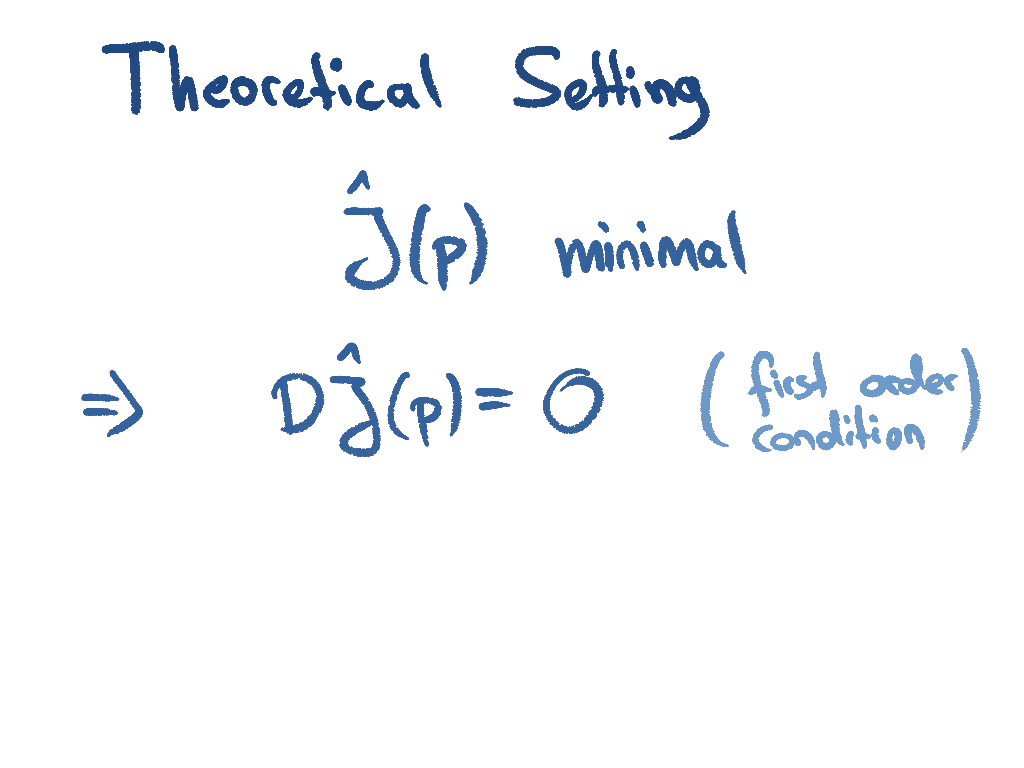 Theoretical Setting
Ĵ(p) minimal
⇒ DĴ(p) = 0 (first order
condition)